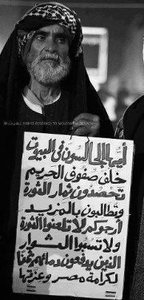 أيها الجالسون في البيوت
خلف صفوف الحريم
تحصدون ثمار الثورة
وتطالبون بالمزيد
أرجوكم لا تلعنوا الثورة
ولا تسبوا الثوار
الذين يدفعون دماءهم ثمنًا
لكرامة مصر وعزتها